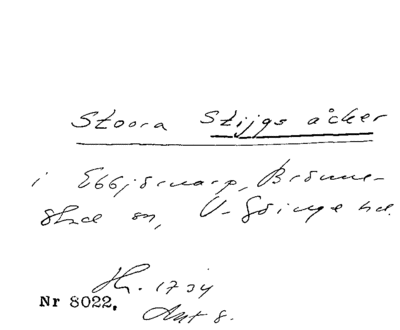 Stoora Stijgs åcker
i Ebbjörnarp, Brönne-
stad sn, V-Göinge hd.
Hr. 1734
Nr 8022. Akt 8.